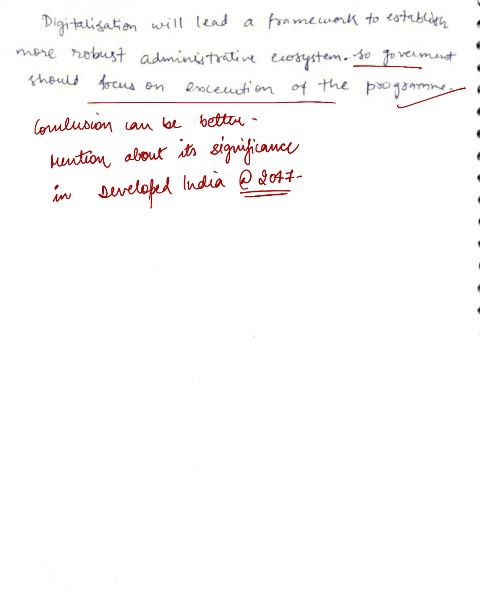 Digitalisation will lead a framework to establish
more robust administrative ecosystem. so goverment
should focus on excecution of the programme.
Conclusion can be better -
Mention about its significance
in Developed India @ 2047-